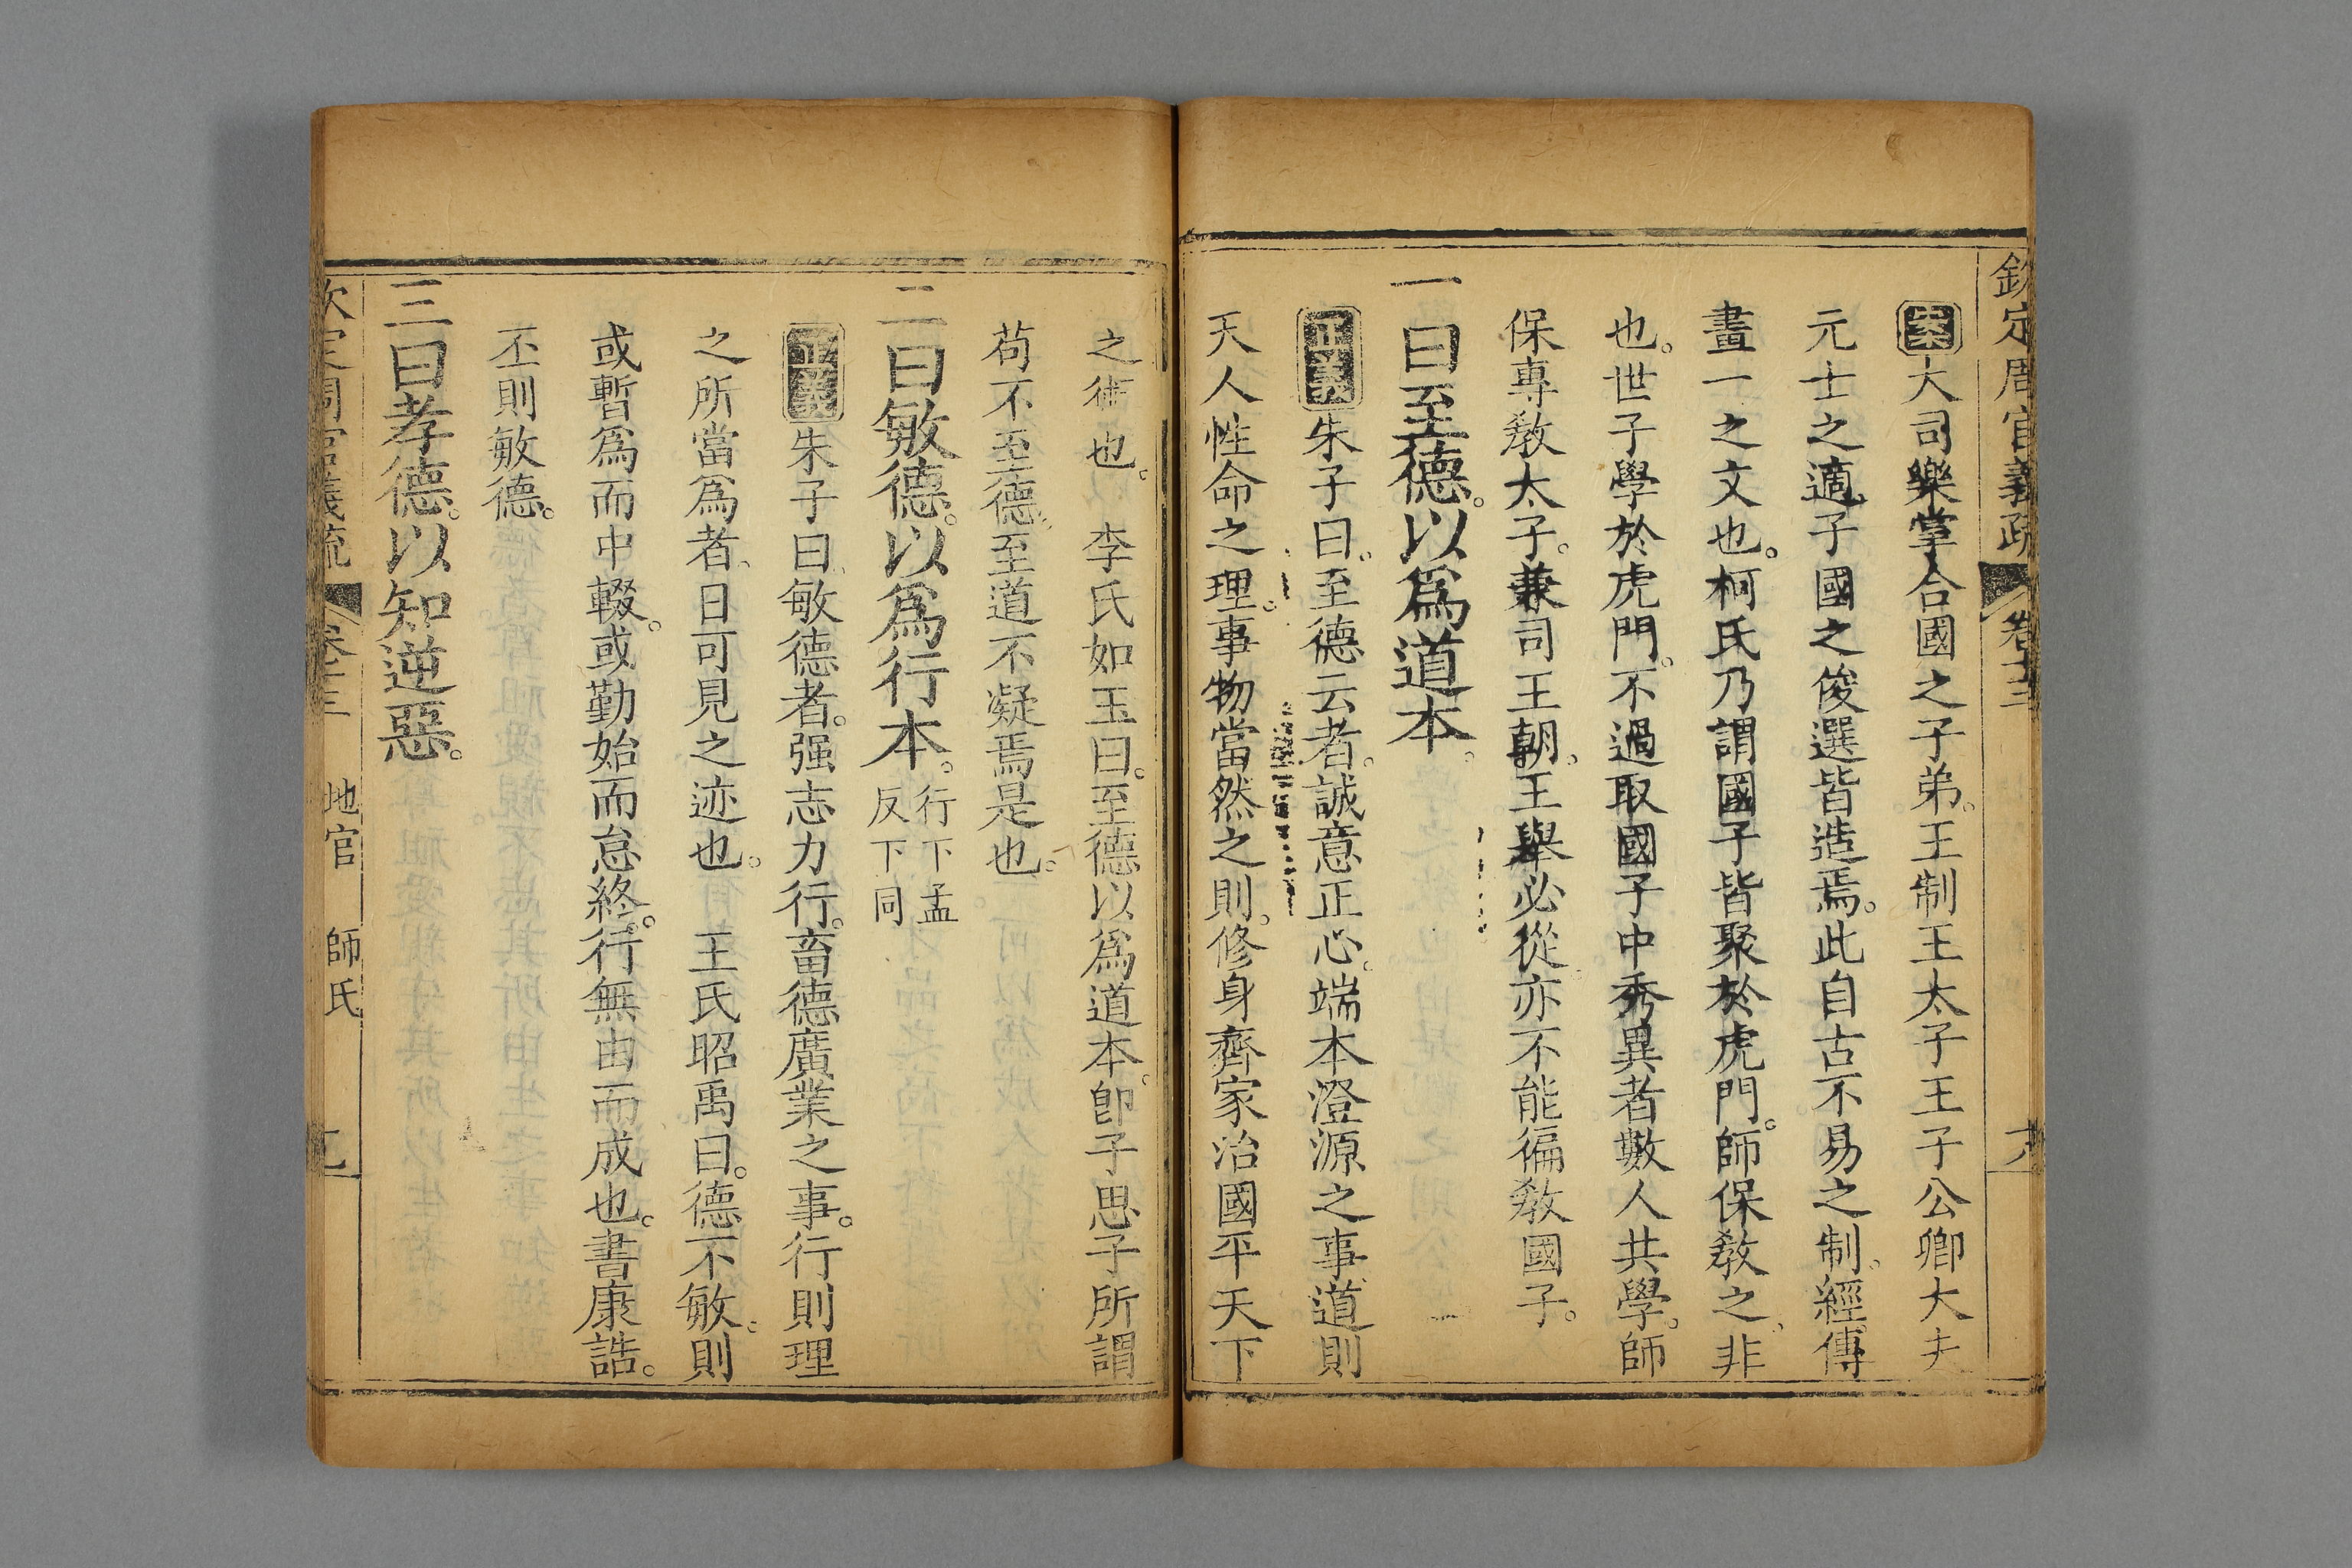 欽定周官義疏 卷十三
案大司樂掌合國之子弟。王制王太子王子公卿大夫
元士之適子國之俊選皆造焉。此自古不易之制。經傳
畫一之文也。柯氏乃謂國子皆聚於虎門。師保敎之、非
也。世子學於虎門。不過取國子中秀異者數人共學。師
保專敎太子。兼司王朝。王舉必從。亦不能徧敎國子。
一曰至德。以爲道本。
正義朱子曰。至德云者。誠意正心。端本澄源之事。道則
天人性命之理。事物當然之則。修身齊家治國平天下
之術也。 李氏如玉曰。至德以爲道本。卽子思子所謂
苟不至德。至道不凝焉是也。
二曰敏德。以爲行本。行下孟
反下同
正義朱子曰、敏德者。强志力行。畜德廣業之事。行則理
之所當爲者、日可見之迹也。 王氏昭禹曰。德不敏。則
或暫爲而中輟。或勤始而怠終。行無由而成也。書康誥。
丕則敏德。
三曰孝德。以知逆惡。
地官 師氏